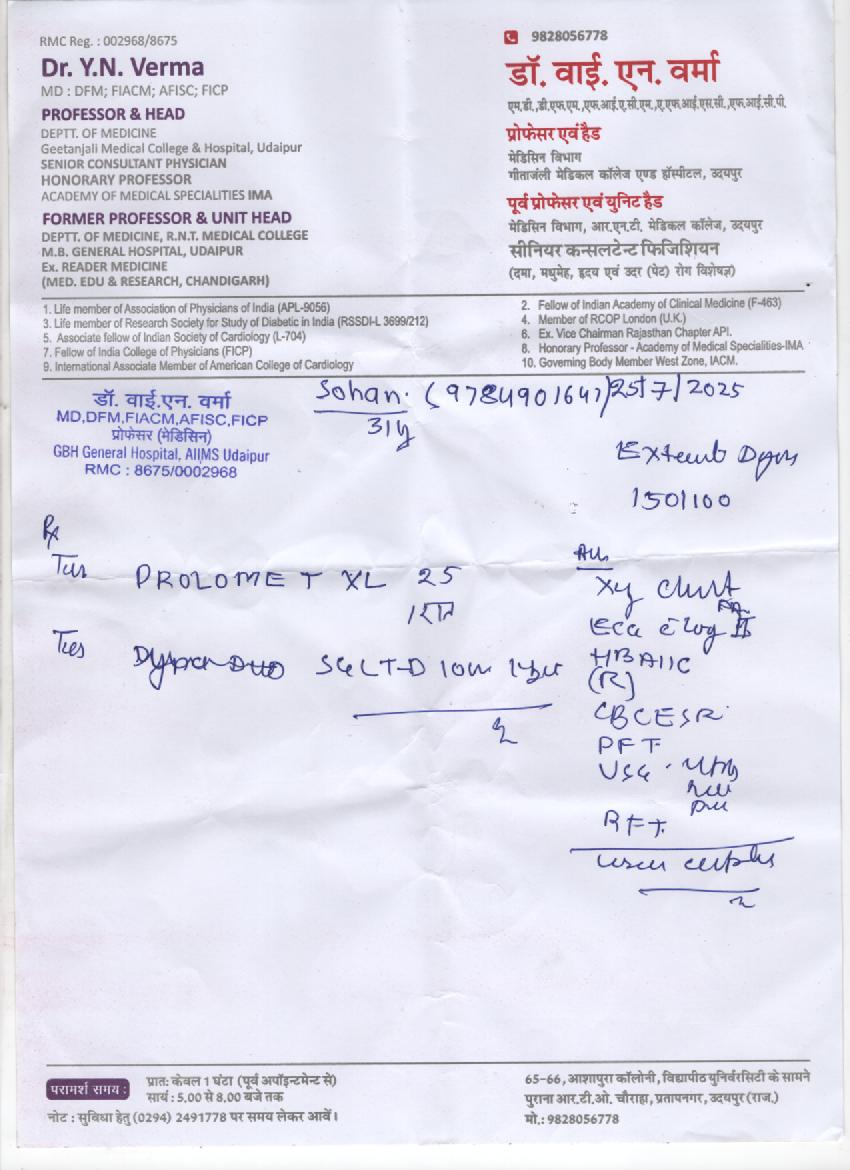 RMC Reg. : 002968/8675
Dr. Y.N. Verma
MD : DFM; FIACM; AFISC; FICP
PROFESSOR & HEAD
DEPTT. OF MEDICINE
Geetanjali Medical College & Hospital, Udaipur
SENIOR CONSULTANT PHYSICIAN
HONORARY PROFESSOR
ACADEMY OF MEDICAL SPECIALITIES IMA
FORMER PROFESSOR & UNIT HEAD
DEPTT. OF MEDICINE, R.N.T. MEDICAL COLLEGE
M.B. GENERAL HOSPITAL, UDAIPUR
Ex. READER MEDICINE
(MED. EDU & RESEARCH, CHANDIGARH)
9828056778
डॉ. वाई. एन. वर्मा
एम.डी.,डी.एफ.एम.,एफ.आई.ए.सी.एम.,ए.एफ.आई.एस.सी.,एफ.आई.सी.पी.
प्रोफेसर एवं हैड
मेडिसिन विभाग
गीताजंली मेडिकल कॉलेज एण्ड हॉस्पीटल, उदयपुर
पूर्व प्रोफेसर एवं युनिट हैड
मेडिसिन विभाग, आर.एन.टी. मेडिकल कॉलेज, उदयपुर
सीनियर कन्सलटेन्ट फिजिशियन
(दमा, मधुमेह, हृदय एवं उदर (पेट) रोग विशेषज्ञ)
1. Life member of Association of Physicians of India (APL-9056)
3. Life member of Research Society for Study of Diabetic in India (RSSDI-L 3699/212)
5. Associate fellow of Indian Society of Cardiology (L-704)
7. Fellow of India College of Physicians (FICP)
9. International Associate Member of American College of Cardiology
2. Fellow of Indian Academy of Clinical Medicine (F-463)
4. Member of RCOP London (U.K.)
6. Ex. Vice Chairman Rajasthan Chapter API.
8. Honorary Professor - Academy of Medical Specialities-IMA
10. Governing Body Member West Zone, IACM.
डॉ. वाई.एन. वर्मा
MD,DFM,FIACM,AFISC,FICP
प्रोफेसर (मेडिसिन)
GBH General Hospital, AIIMS Udaipur
RMC : 8675/0002968
Sohan. (9784901647) 25/7/2025
31y
150/100
Rx
PROLOMET XL 25
SGLT-D 10
Adv
Xy chest
ECG
HBA1C
(R)
CBC ESR
PFT
USG
RFT
परामर्श समय :
प्रातः केवल 1 घंटा (पूर्व अपॉइन्टमेन्ट से)
सायं : 5.00 से 8.00 बजे तक
नोट : सुविधा हेतु (0294) 2491778 पर समय लेकर आवें।
65-66, आशापुरा कॉलोनी, विद्यापीठ युनिर्वरसिटी के सामने
पुराना आर.टी.ओ. चौराहा, प्रतापनगर, उदयपुर (राज.)
मो.: 9828056778